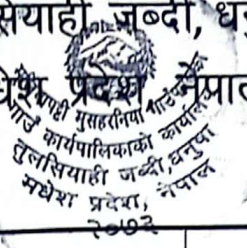 सियाही जब्दी, धनु
धेश प्रदेश नेपाल
मुखियापट्टी मुसहरनिया गाउँपालिका
गाउँ कार्यपालिकाको कार्यालय
तुलसियाही जब्दी, धनुषा
मधेश प्रदेश, नेपाल
२०७३